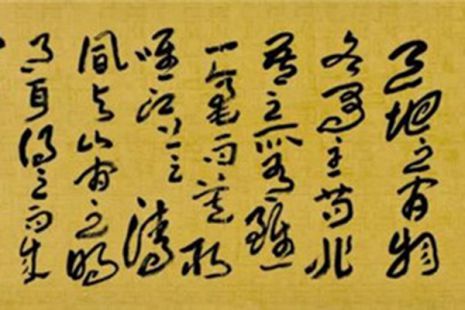 天地之間物
各有主苟非
吾之所有雖
一毫而莫取
惟江上之清
風與山間之明
月耳得之而